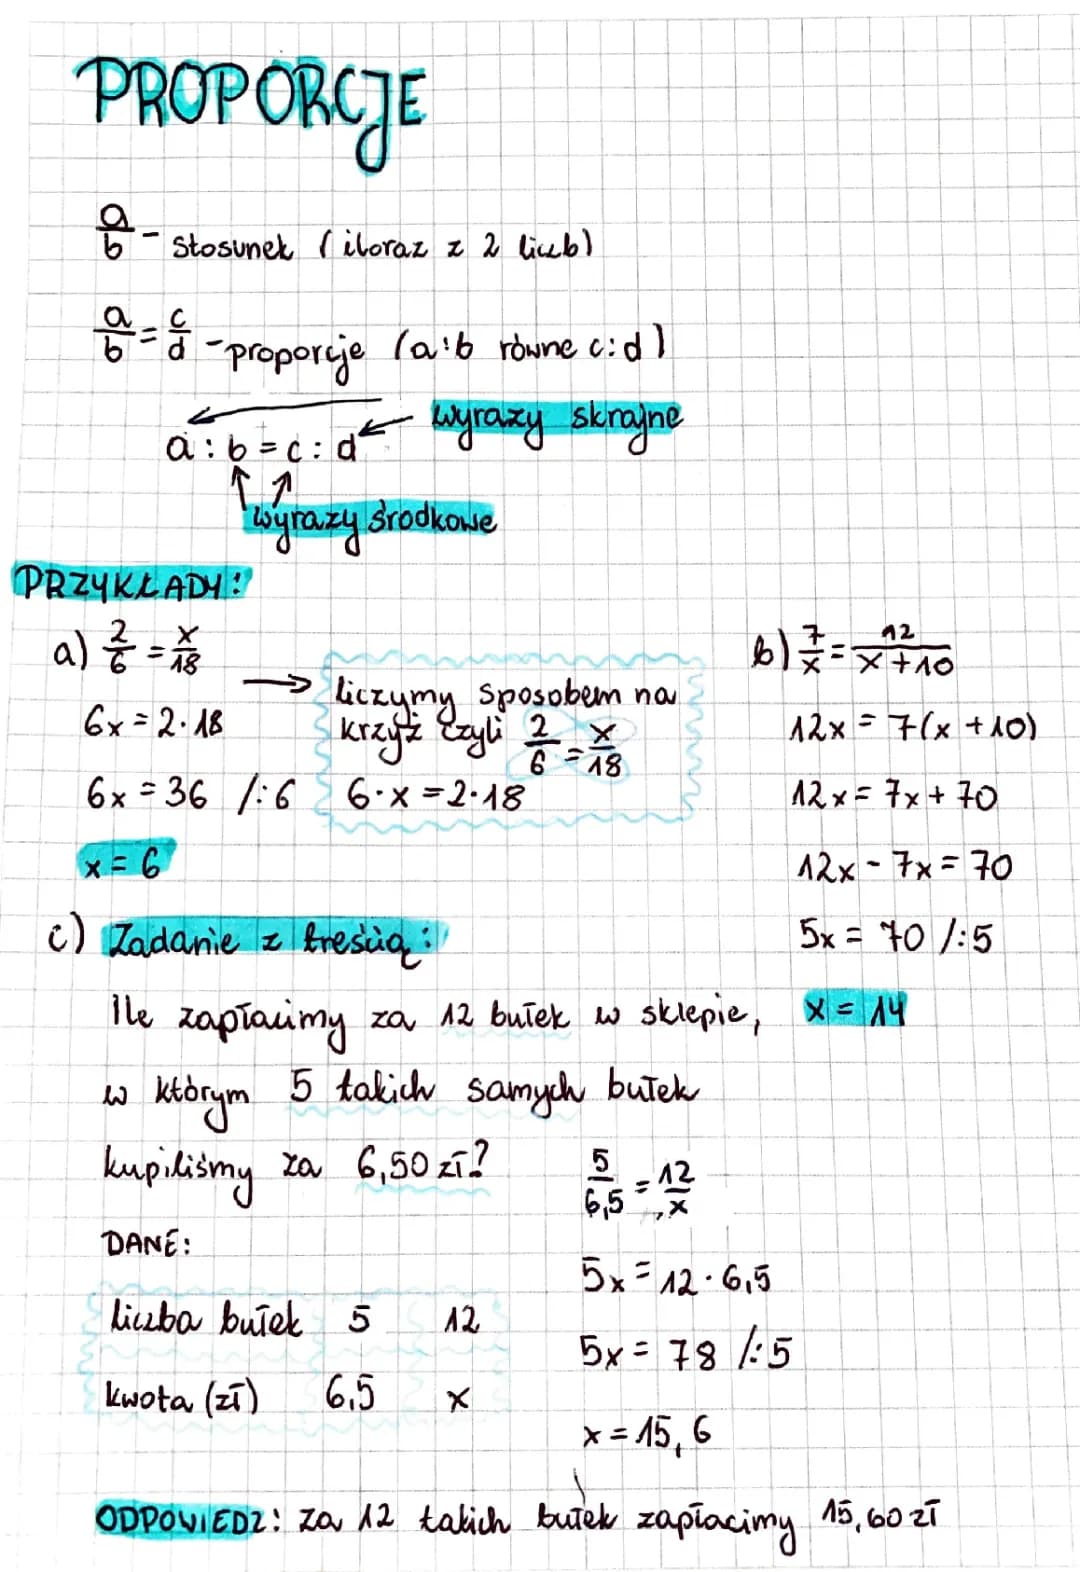 PROPORCJE
a/b - stosunek (iloraz z 2 liczb)
a/b = c/d - proporcje (a:b równe c:d)
wyrazy skrajne
a : b = c : d
wyrazy środkowe
PRZYKŁADY:
a) 2/6 = x/18
6x = 2·18
6x = 36 /:6
x = 6
liczymy sposobem na
krzyż czyli 2/6 = x/18
6·x = 2·18
b) 7/x = 12/x+10
12x = 7(x+10)
12x = 7x + 70
12x - 7x = 70
5x = 70 /:5
x = 14
c) Zadanie z treścią:
Ile zapłacimy za 12 bułek w sklepie,
w którym 5 takich samych bułek
kupiliśmy za 6,50 zł?
DANE:
liczba bułek 5 12
kwota (zł) 6,5 x
5/6,5 = 12/x
5x = 12·6,5
5x = 78 /:5
x = 15,6
ODPOWIEDZ: za 12 takich bułek zapłacimy 15,60 zł